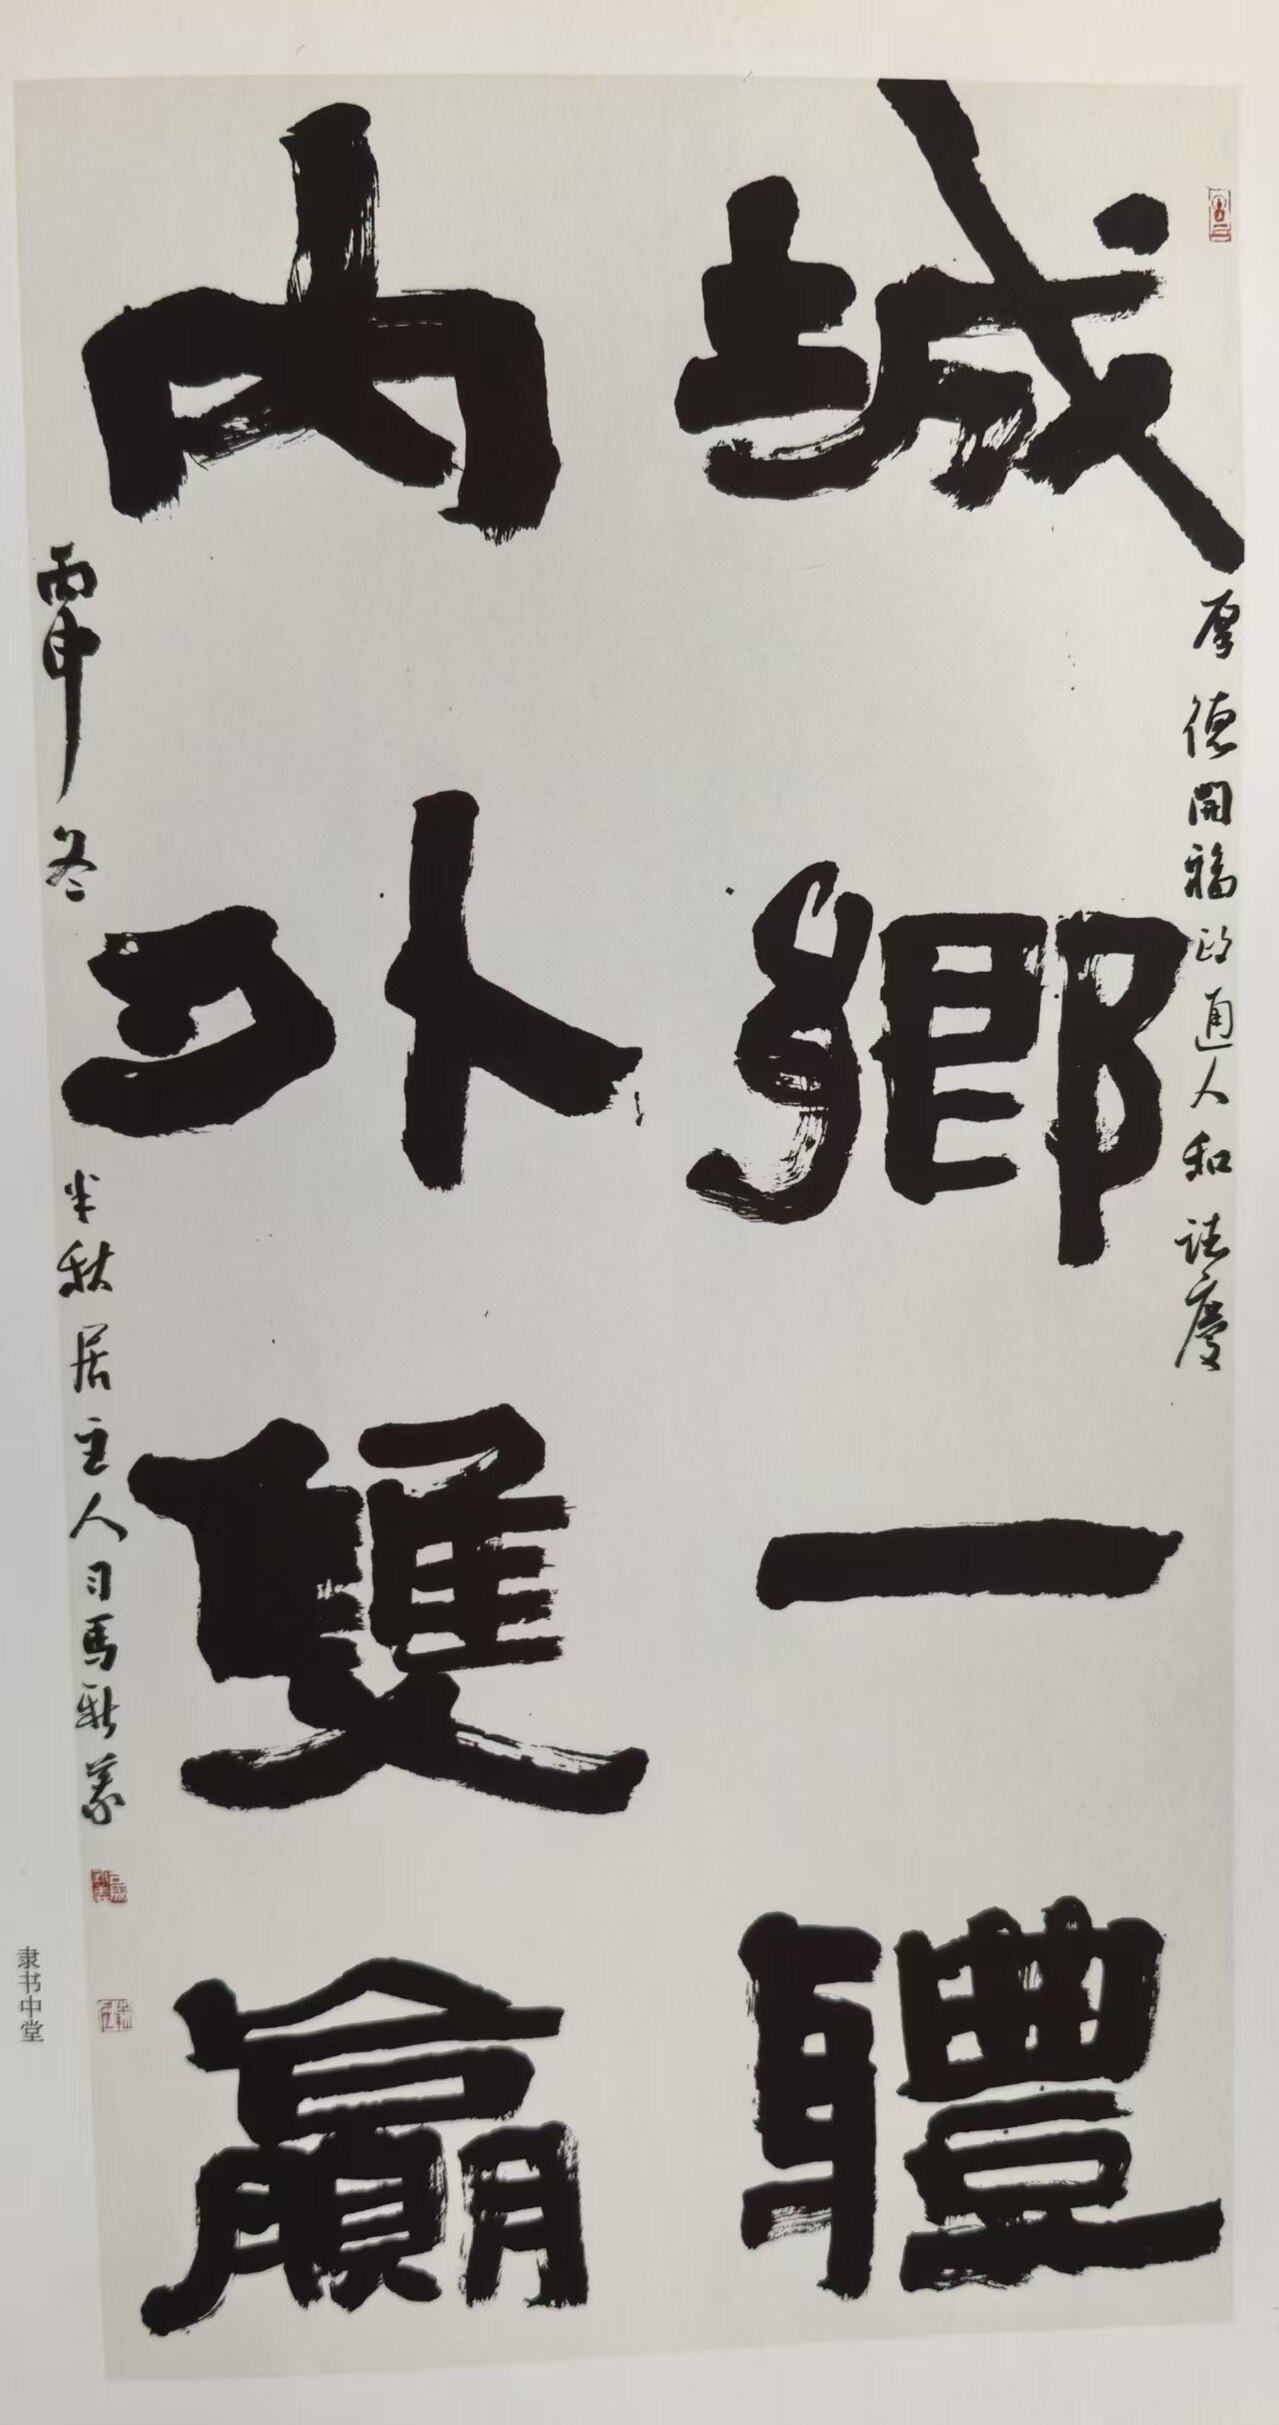 厚德開福政通人和誌慶
城鄉一體
內外雙贏
丙申冬半秋居主人司馬新義
隶书中堂